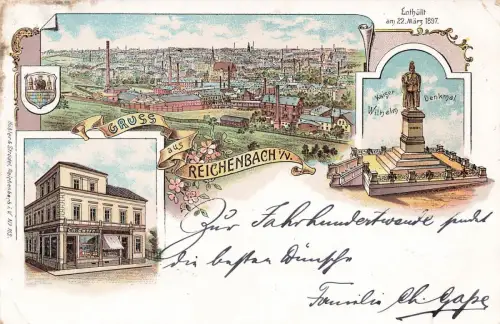 Enthüllt
am 22. März 1897.
Kaiser
Wilhelm Denkmal
GRUSS
aus
REICHENBACH i/V.
Zur Jahrhundertwende sendet
die besten Wünsche
Familie Ch.